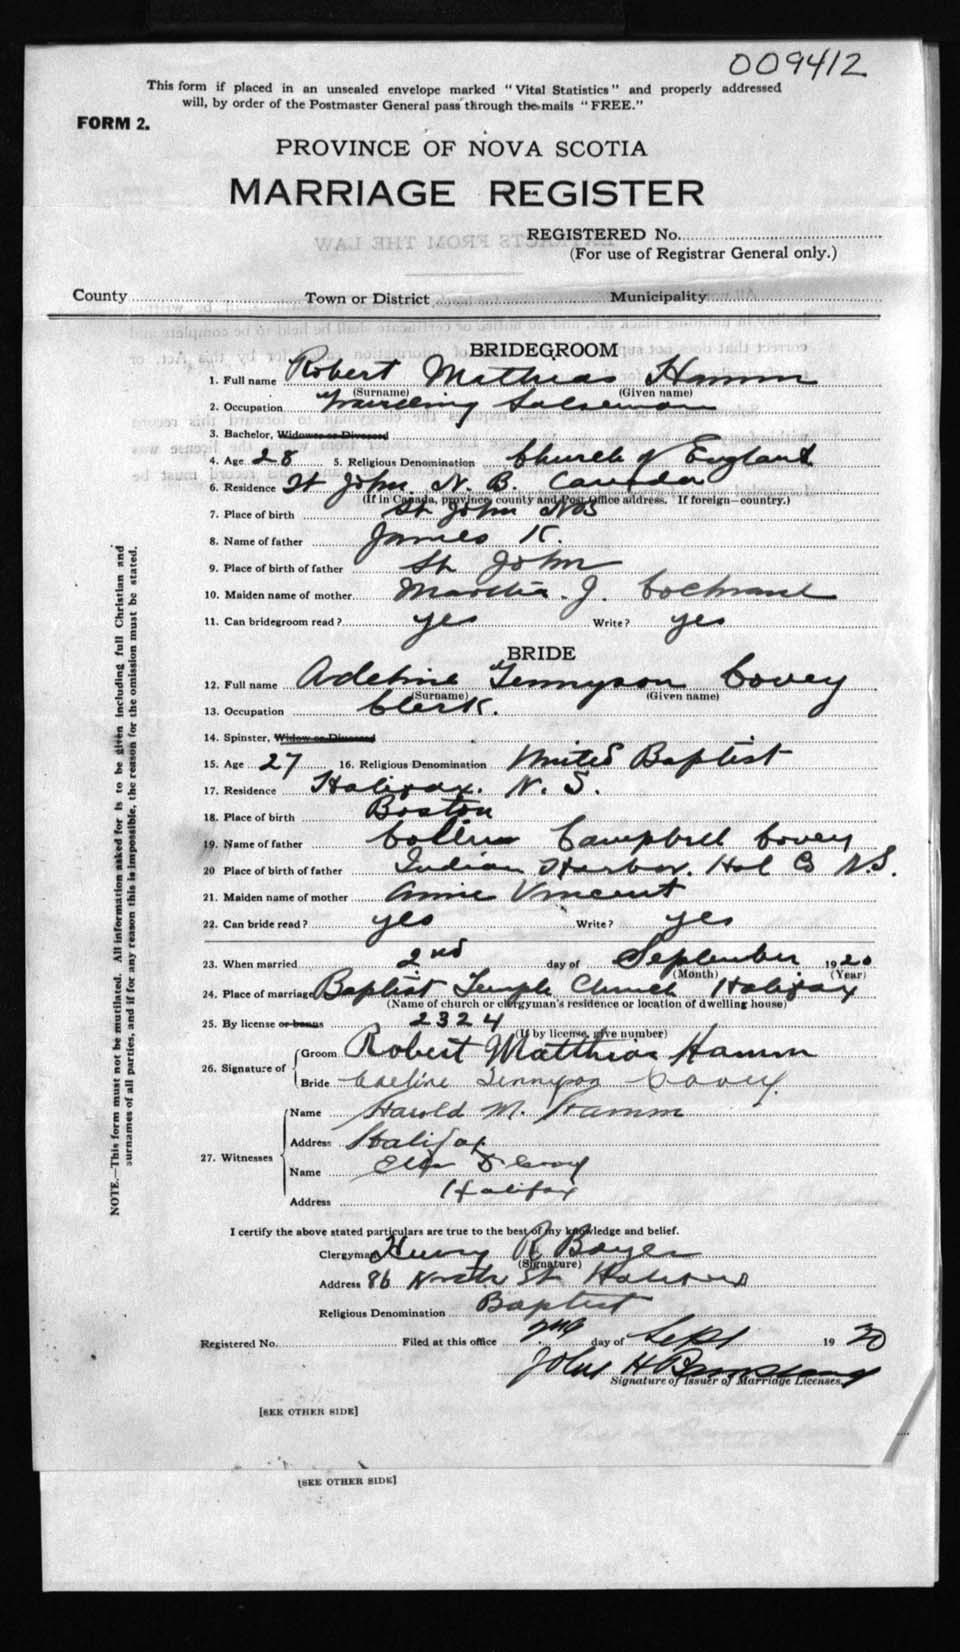 009412
This form if placed in an unsealed envelope marked "Vital Statistics" and properly addressed
will, by order of the Postmaster General pass through the mails "FREE."
FORM 2.
PROVINCE OF NOVA SCOTIA
MARRIAGE REGISTER
REGISTERED No.
(For use of Registrar General only.)
County Town or District Municipality
BRIDEGROOM
1. Full name Robert Mathias Hamm
(Surname) (Given name)
2. Occupation Travelling Salesman
3. Bachelor, Widower or Divorced
4. Age 28 5. Religious Denomination Church of England
6. Residence St John N. B. Canada
(If in Canada, province, county and Post Office address. If foreign—country.)
7. Place of birth St John NB
8. Name of father James K.
9. Place of birth of father St John
10. Maiden name of mother Martha J. Cochrane
11. Can bridegroom read? yes Write? yes
BRIDE
12. Full name Adeline Tennyson Covey
(Surname) (Given name)
13. Occupation Clerk.
14. Spinster, Widow or Divorced
15. Age 27 16. Religious Denomination United Baptist
17. Residence Halifax. N. S.
18. Place of birth Boston
19. Name of father Campbell Covey
20 Place of birth of father Indian Harbor. Hal Co N.S.
21. Maiden name of mother Annie Vincent
22. Can bride read? yes Write? yes
23. When married 2nd day of September 1920
(Month) (Year)
24. Place of marriage Baptist Temple Church Halifax
(Name of church or clergyman's residence or location of dwelling house)
25. By license or banns 2324
(If by license, give number)
26. Signature of Groom Robert Matthias Hamm
Bride Adeline Tennyson Covey.
27. Witnesses Name Harold M. Hamm
Address Halifax
Name
Address Halifax
I certify the above stated particulars are true to the best of my knowledge and belief.
Clergyman Henry R Boyer
(Signature)
Address 86 North St Halifax
Religious Denomination Baptist
Registered No. Filed at this office 2nd day of Sept 19 20
John H
Signature of Issuer of Marriage Licenses.
[SEE OTHER SIDE]
[SEE OTHER SIDE]
NOTE.—This form must not be mutilated. All information asked for is to be given including full Christian and
surnames of all parties, and if for any reason this is impossible, the reason for the omission must be stated.